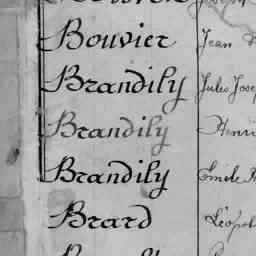 Bouvier Jean
Brandily Jules Jose
Brandily Henri
Brandily Émile
Brard Léopol